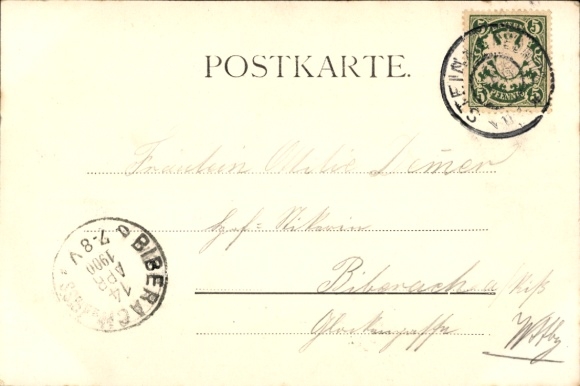 POSTKARTE.
BAYERN
5 5
5 5
PFENNIG
STEIN
Fräulein Ottilie
Biberach a/Riß
Glockengasse Wttbg
BIBERACH
14 APR 1900
7-8 V